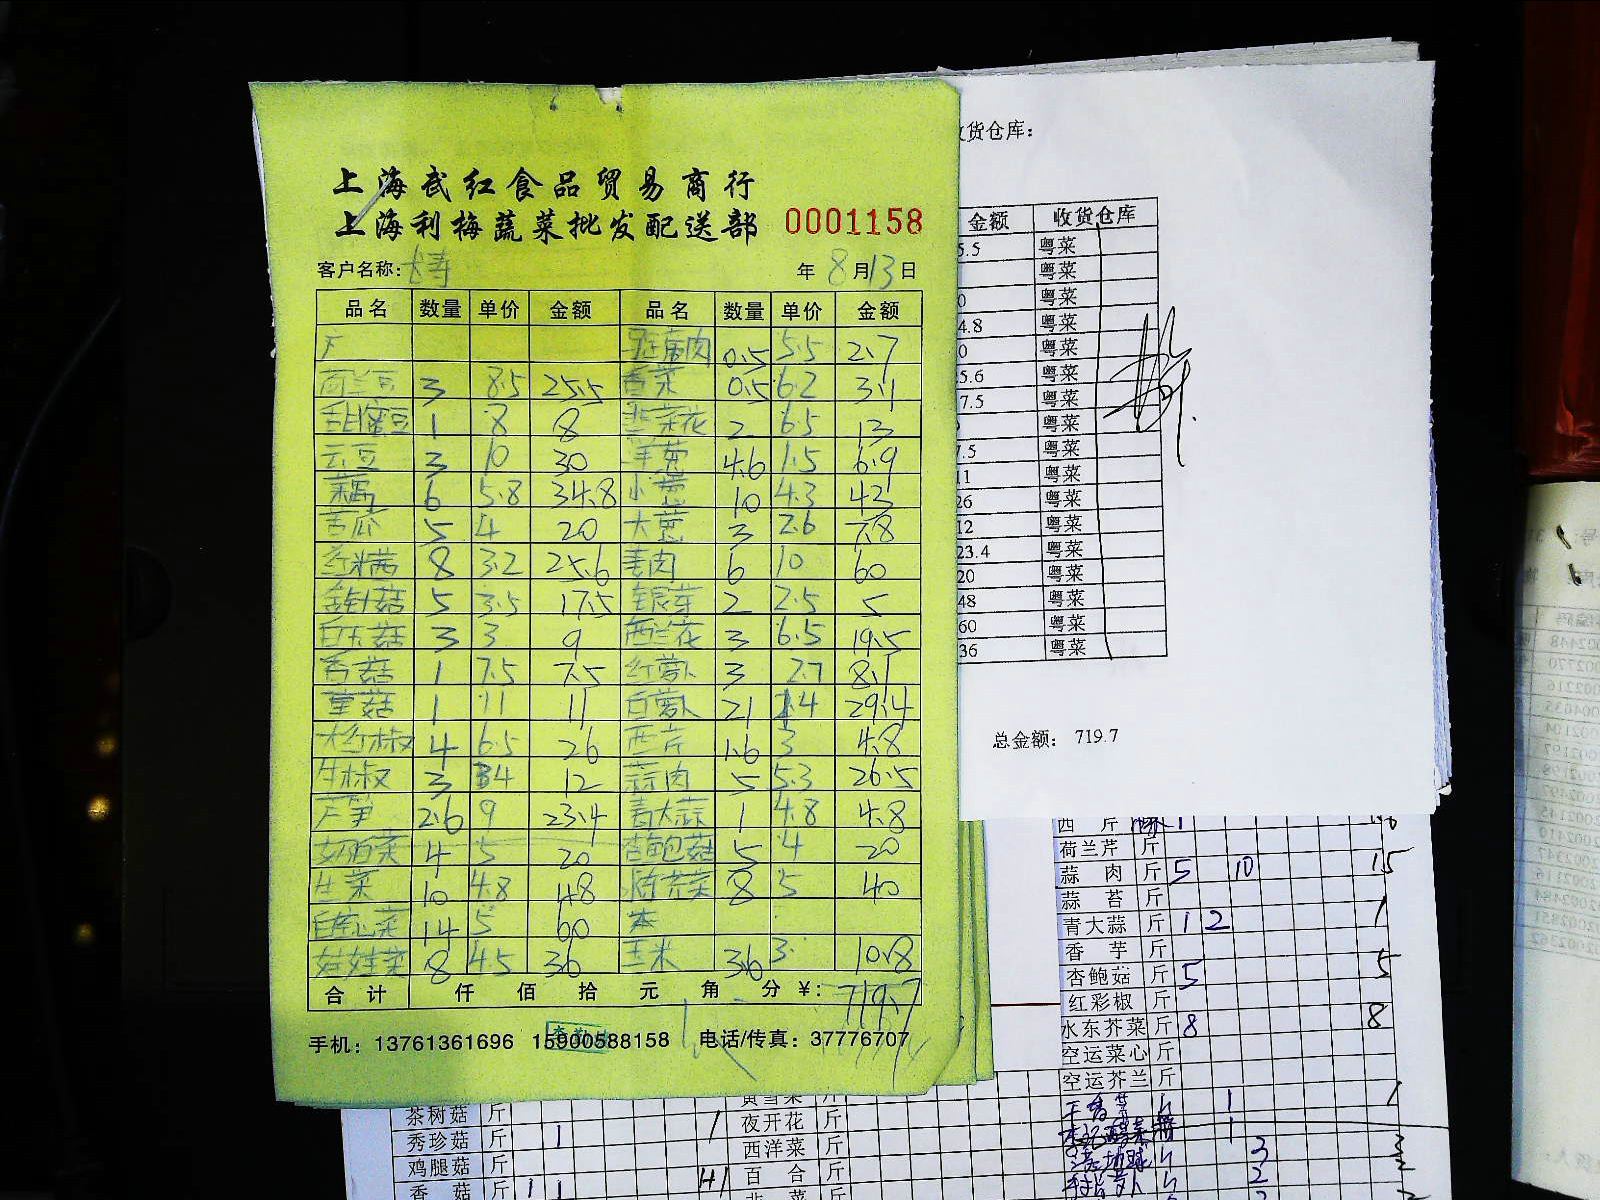 上海武红食品贸易商行
上海利梅蔬菜批发配送部 0001158
客户名称: 长寿 年 8 月 13 日
品名 数量 单价 金额 品名 数量 单价 金额
0.5 5.5 2.7
荷兰豆 3 8.5 25.5 香菜 0.5 6.2 3.1
甜蜜豆 1 8 8 韭菜花 2 6.5 13
云豆 3 10 30 洋葱 4.6 1.5 6.9
藕 6 5.8 34.8 小葱 10 4.3 43
苦瓜 5 4 20 大葱 3 2.6 7.8
8 3.2 25.6 姜肉 6 10 60
金针菇 5 3.5 17.5 银芽 2 2.5 5
白玉菇 3 3 9 西兰花 3 6.5 19.5
香菇 1 7.5 7.5 红萝卜 3 2.7 8.1
草菇 1 11 11 白萝卜 21 1.4 29.4
大红椒 4 6.5 26 西芹 1.6 3 4.8
牛椒 3 4 12 蒜肉 5 5.3 26.5
芦笋 2.6 9 23.4 青大蒜 1 4.8 4.8
奶白菜 4 5 20 杏鲍菇 5 4 20
生菜 10 4.8 48 水东芥菜 8 5 40
14 5 60
娃娃菜 8 4.5 36 玉米 3.6 3 10.8
合计 仟 佰 拾 元 角 分 ¥: 719.7
手机: 13761361696 15900588158 电话/传真: 37776707
收货仓库:
金额 收货仓库
5.5 粤菜
粤菜
0 粤菜
4.8 粤菜
0 粤菜
5.6 粤菜
7.5 粤菜
粤菜
7.5 粤菜
11 粤菜
26 粤菜
12 粤菜
23.4 粤菜
20 粤菜
48 粤菜
60 粤菜
36 粤菜
总金额: 719.7
西芹 斤 1 1.6
荷兰芹 斤
蒜肉 斤 5 10 15
蒜苔 斤
青大蒜 斤 1 2 1
香芋 斤
杏鲍菇 斤 5 5
红彩椒 斤
水东芥菜 斤 8 8
空运菜心 斤
空运芥兰 斤
茶树菇 斤 黄雪菜 斤
秀珍菇 斤 1 1 夜开花 斤
鸡腿菇 斤 西洋菜 斤
香菇 斤 1 1 百合 斤